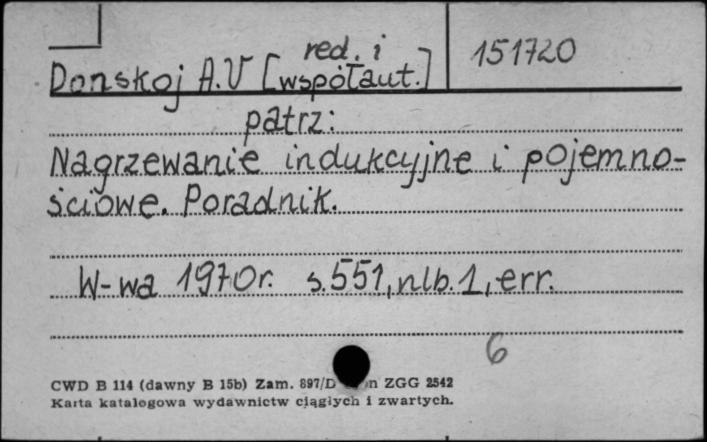 Donskoj A.V [red. i współaut.] 151720
patrz:
Nagrzewanie indukcyjne i pojemno-
ściowe. Poradnik.
W-wa 1970r. s.551, nlb.1, err.
6
CWD B 114 (dawny B 15b) Zam. 897/D ZGG 2542
Karta katalogowa wydawnictw ciągłych i zwartych.